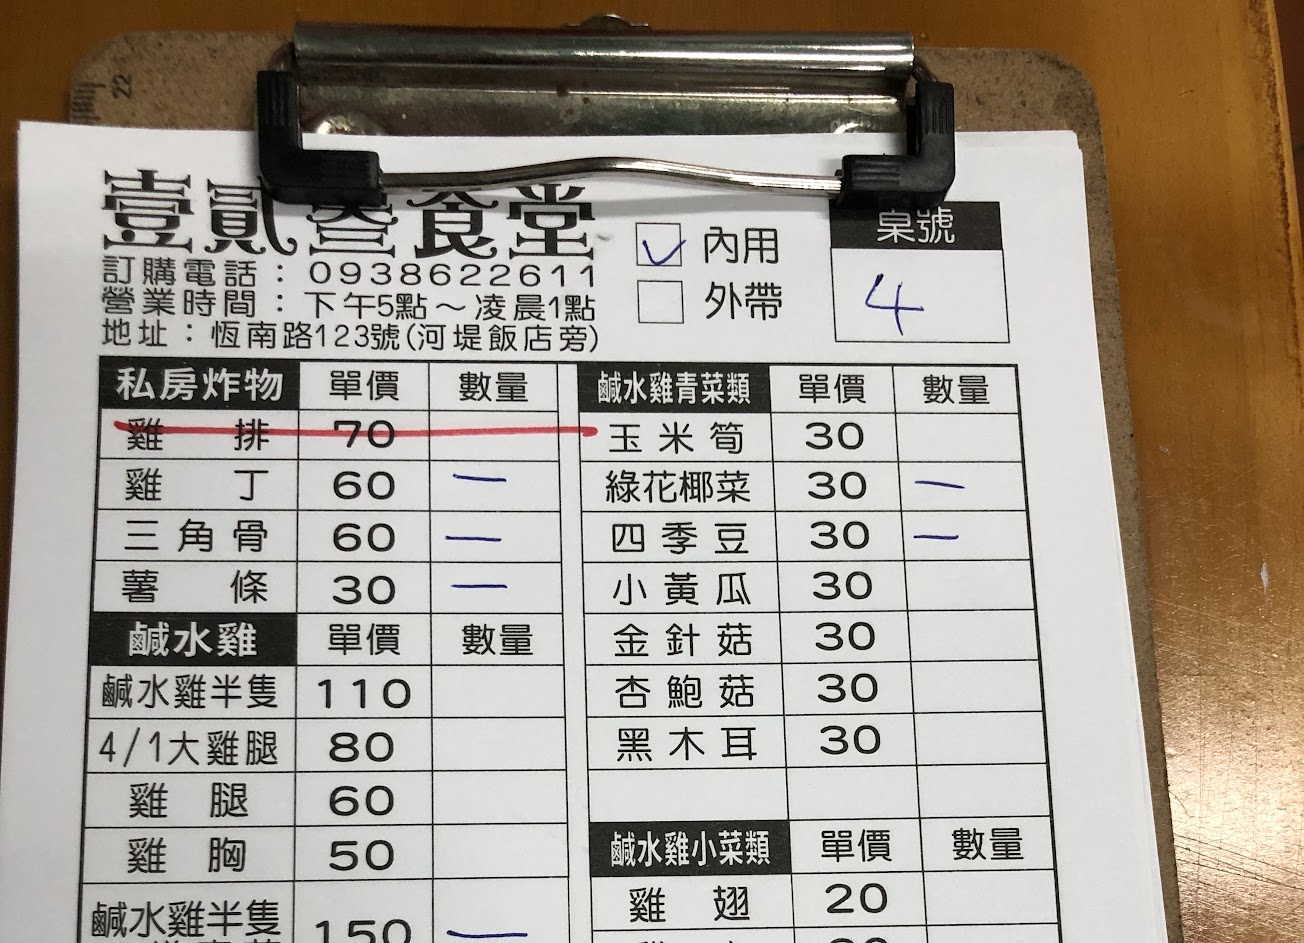 壹貳叁食堂
訂購電話：0938622611
營業時間：下午5點～凌晨1點
地址：恆南路123號(河堤飯店旁)
內用
外帶
桌號
4
私房炸物 單價 數量
雞排 70
雞丁 60 一
三角骨 60 一
薯條 30 一
鹹水雞 單價 數量
鹹水雞半隻 110
4/1大雞腿 80
雞腿 60
雞胸 50
鹹水雞半隻 150 一
鹹水雞青菜類 單價 數量
玉米筍 30
綠花椰菜 30 一
四季豆 30 一
小黃瓜 30
金針菇 30
杏鮑菇 30
黑木耳 30
鹹水雞小菜類 單價 數量
雞翅 20
22